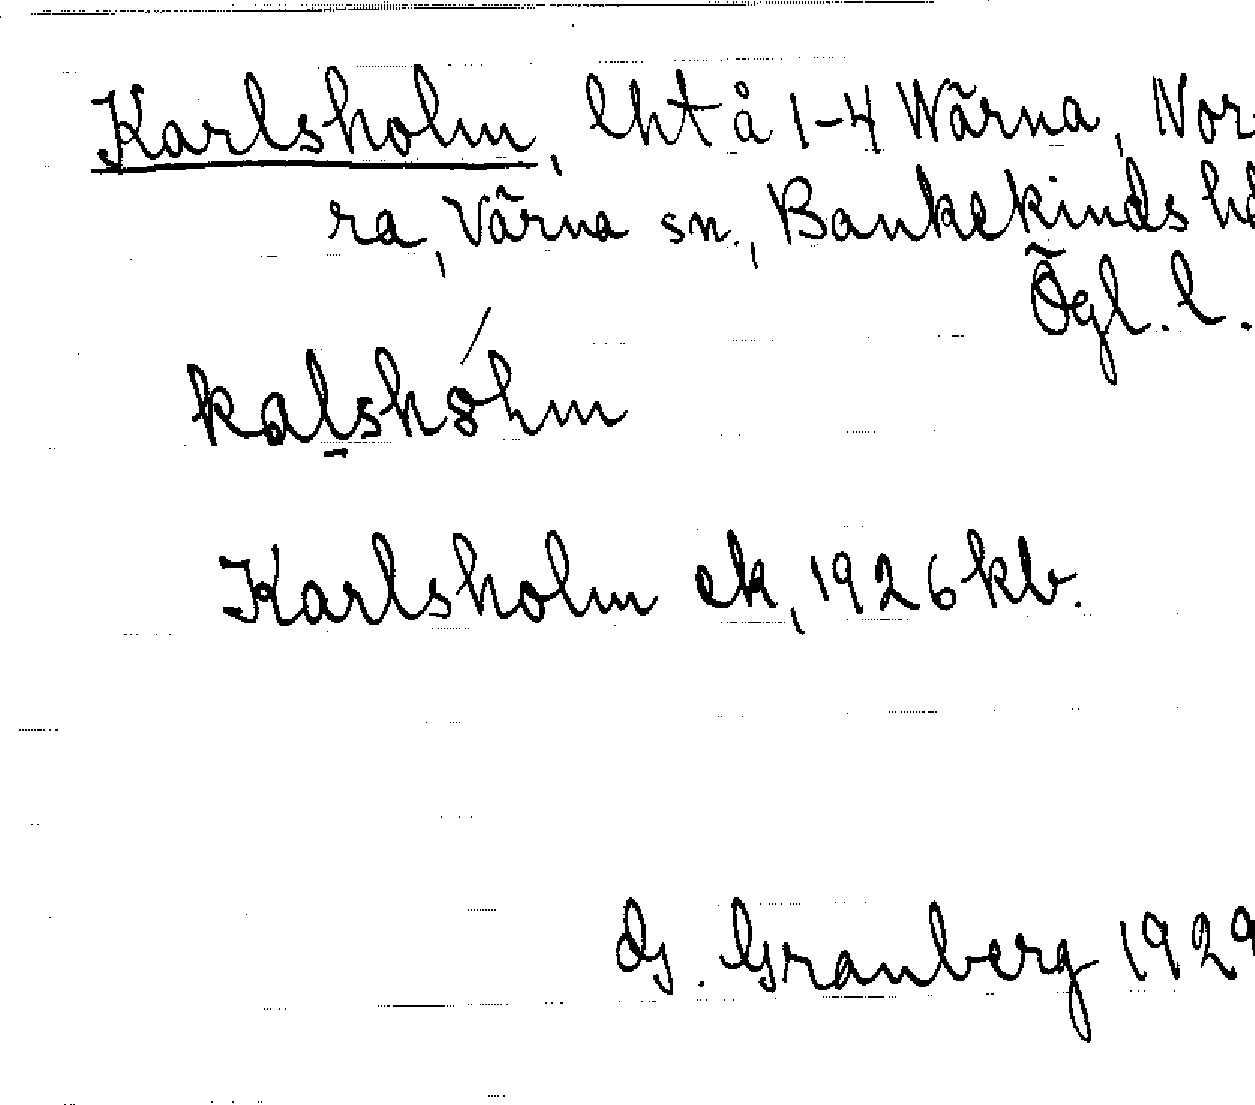 Karlsholm, lht å 1-4 Wärna, Nor-
ra, Värna sn., Bankekinds hd
Ögl. l.
kalshólm
Karlsholm ek, 1926 kb.
G. Granberg 1929